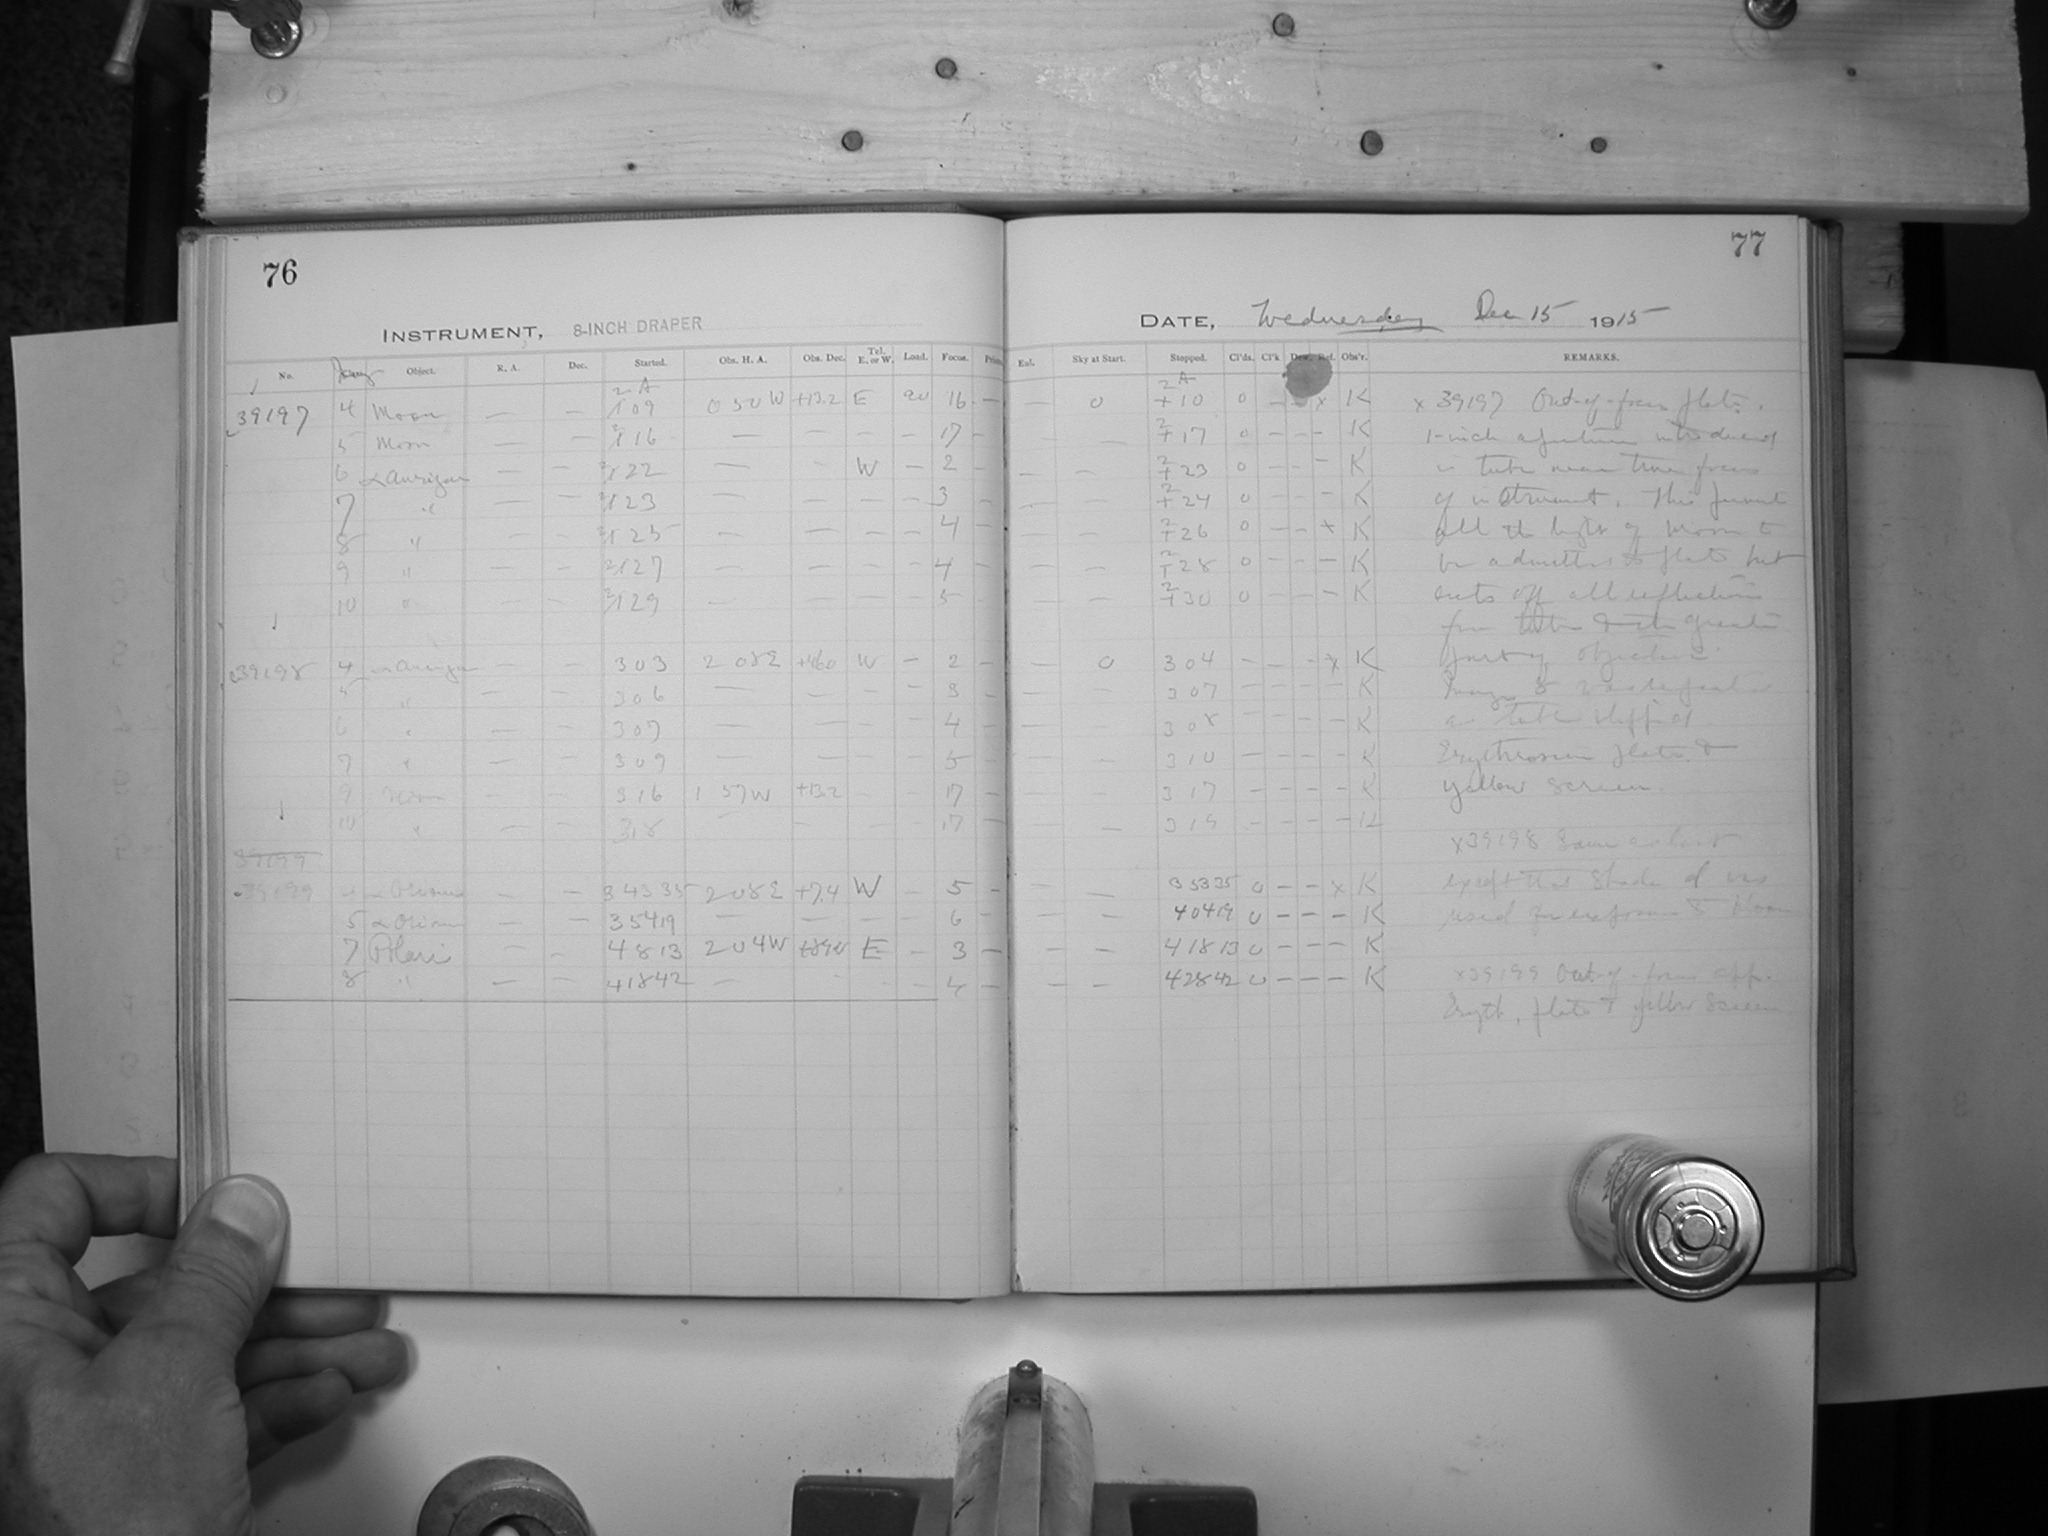 76
INSTRUMENT, 8-INCH DRAPER
No. Object. R. A. Dec. Started. Obs. H. A. Obs. Dec. Tel. E. or W. Load. Focus.
2 A
39197 4 Moon — — 1 09 0 50 W +13.2 E 20 16 —
5 Moon — — 2 1 16 — — — — 17 —
6 α Aurigae — — 2 1 22 — - W — 2 —
7 " — — 2 1 23 — — — — 3 —
8 " — — 2 1 25 — — — — 4 —
9 " — — 2 1 27 — — — — 4 —
10 " — — 2 1 29 — — — — 5 -
39198 4 α Aurigae — — 3 03 2 08 E +46.0 W — 2 —
5 " — — 3 06 — — — — 3 —
6 " — — 3 07 — — — — 4 —
7 " — — 3 09 — — — — 5 —
9 Moon 3 16 1 57 W +13.2 17 —
10 " — — 3 18 — - — — 17 —
39199
39199 4 α Orionis — — 3 43 35 2 08 E +7.4 W — 5 —
5 α Orionis — 3 54 19 — — — — 6 —
7 Polaris — - 4 8 13 2 04 W E — 3 —
8 " — — 4 18 42 — - - - 4 -
77
DATE, Wednesday Dec 15 1915
Enl. Sky at Start. Stopped. Cl'ds. Cl'k Dew. Ref. Obs'r. REMARKS.
2 A
— 0 1 10 0 — — x K x 39197 Out-of-focus plate.
— — 2 1 17 0 — — — K 1-inch aperture introduced
— — 2 1 23 0 — — — K in tube near true focus
— — 2 1 24 0 — — — K of instrument. This permits
— — 2 1 26 0 — — x K all the light of Moon to
— — 2 1 28 0 — — — K be admitted to plate but
2 1 30 0 — — — K cuts off all reflections
from greater
— 0 3 04 — — — x K part of objective.
— — 3 07 — — — — K Image 5
— — 3 08 — — — — K as slipped.
— — 3 10 — — — — K Erythrosin plate &
— — 3 17 — — — — K yellow screen.
— 3 19 — — — — K
x39198 Same as last
— — 3 53 35 0 — — x K except that shade of was
— — 4 04 19 0 — — — K used for exposures to Moon
— — 4 18 13 0 — — — K
— — 4 28 42 0 — — — K x39199 Out-of-focus app.
Eryth. plate & yellow screen